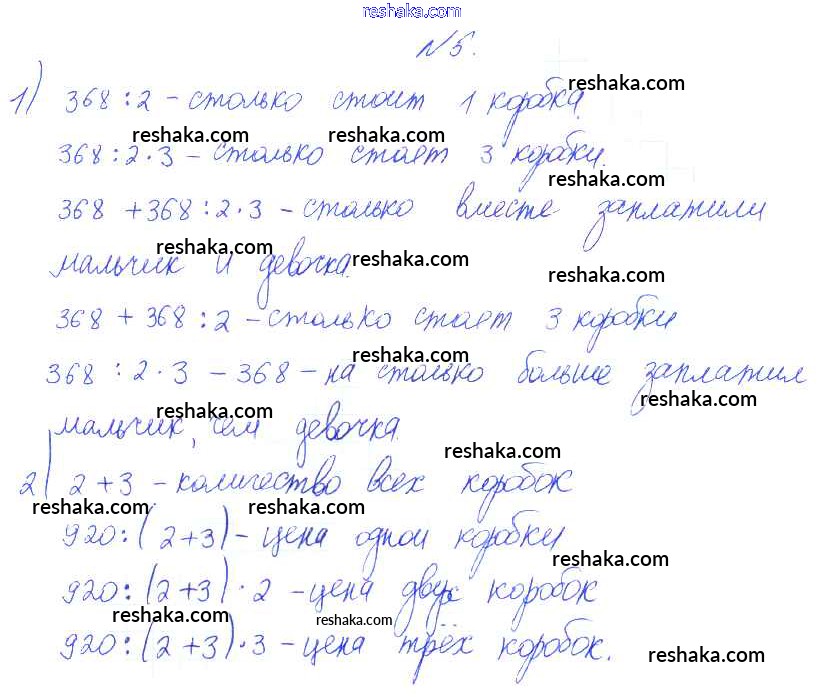 reshaka.com
№5.
1) 368 : 2 - столько стоит 1 коробка.
reshaka.com
reshaka.com reshaka.com
368 : 2 · 3 - столько стоет 3 коробки.
reshaka.com
368 + 368 : 2 · 3 - столько вместе заплатили
reshaka.com reshaka.com
мальчик и девочка.
reshaka.com
368 + 368 : 2 - столько стоет 3 коробки
reshaka.com
368 : 2 · 3 - 368 - на столько больше заплатил
reshaka.com reshaka.com
мальчик, чем девочка.
reshaka.com
2) 2 + 3 - количество всех коробок
reshaka.com reshaka.com
920 : (2 + 3) - цена одной коробки
reshaka.com
920 : (2 + 3) · 2 - цена двух коробок
reshaka.com reshaka.com
920 : (2 + 3) · 3 - цена трёх коробок.
reshaka.com